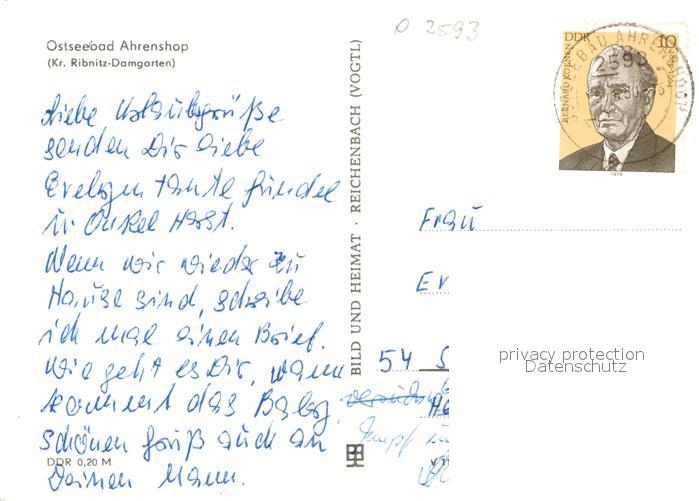 p 2593
Ostseebad Ahrenshoop
(Kr. Ribnitz-Damgarten)
Liebe Urlaubsgrüße
senden Dir Liebe
Evelyn Tante Gründel
u. Onkel Horst.
Wenn wir wieder zu
Hause sind, schreibe
ich mal einen Brief.
Wie geht es Dir, wann
kommt das Baby,
schönen Gruß auch an
Deinen Mann.
DDR 0,20 M
BILD UND HEIMAT · REICHENBACH (VOGTL)
DDR 10
BERNARD KOENEN
1889-1964
1979
2593
Frau
Ev
54 S
privacy protection
Datenschutz